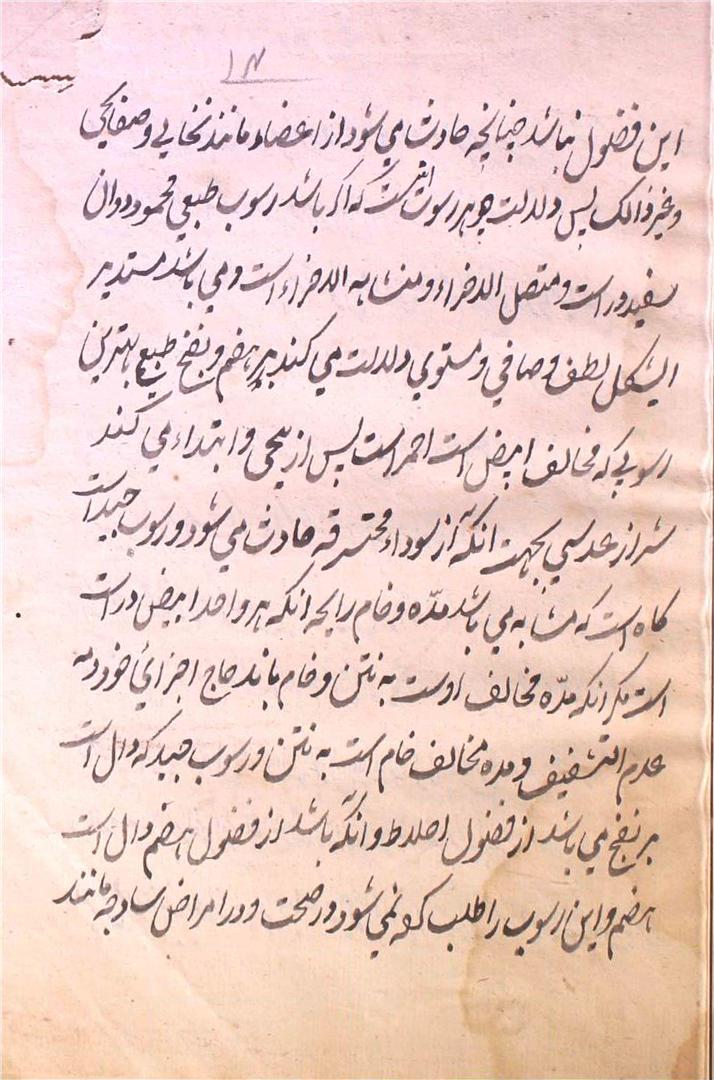 ۱۴
این فضول نباشد چنانچه حادث می شود از اعضاء مانند نخالی و صفایحی
و غیر ذالک پس دلالت جوهر رسوب انست که اگر باشد رسوب طبیعی محمود دوان
سفید و راست و متصل الاجزاء و متشابه الاجزاء است و می باشد مستدیر
الشکل لطف و صافی و مستوی دلالت می کند بر هضم و نضج طبیع بهترین
رسوبی که مخالف ابیض است احمر است پس از یحی و ابتداء می کند
شر از عدسی بجهت انکه از سوداء محترقه حادث می شود و رسوب جید است
کاه است که مشابه می باشد مدّه و خام را بجه انکه هر واحد ابیض و راست
است مکر انکه مدّه مخالف اوست به نتن و خام باندماج اجزائی خود و به
عدم التشفیف و مده مخالف خام است به نتن و رسوب جید که دال است
بر نضج می باشد از فضول اخلاط و انکه باشد از فضول هضم دال است
هضم و این رسوب را طلب کرده نمی شود در صحت و در امراض ساوجه مانند